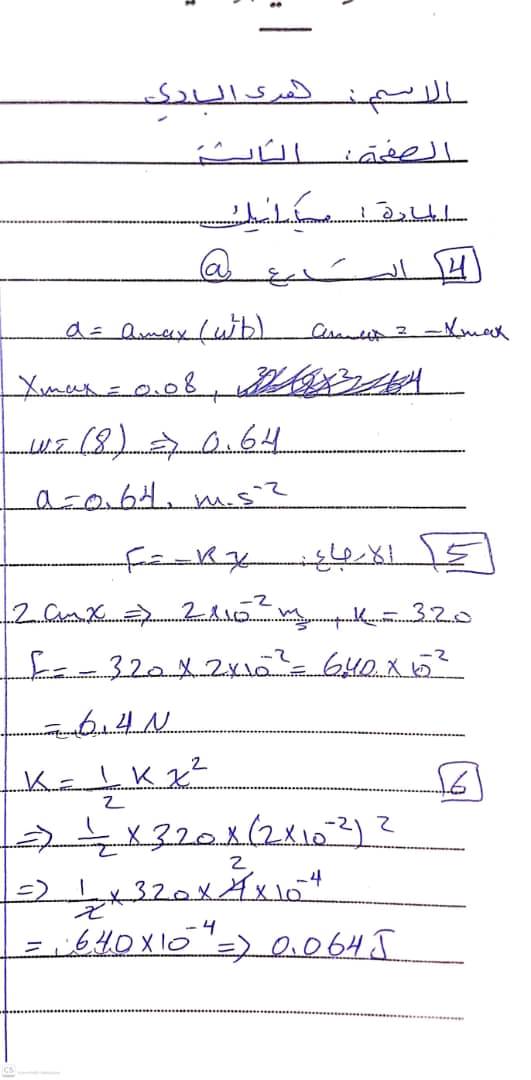 الاسم: هدى البادي
الصفحة: الثالثة
المادة: ميكانيك
4 التسارع a
a = amax (wt) amax = -Xmax
Xmax = 0.08,
w = (8) => 0.64
a = 0.64. m.s-2
5 الارجاع: F = -Kx
2 cmx => 2x10-2 m, K = 320
F = -320 x 2x10-2 = 640. x 10-2
= 6.4 N
6 K = 1/2 K x2
=> 1/2 x 320 x (2x10-2)2
=> 1/2 x 320 x 4 2 x 10-4
= 640x10-4 => 0.064J
CS